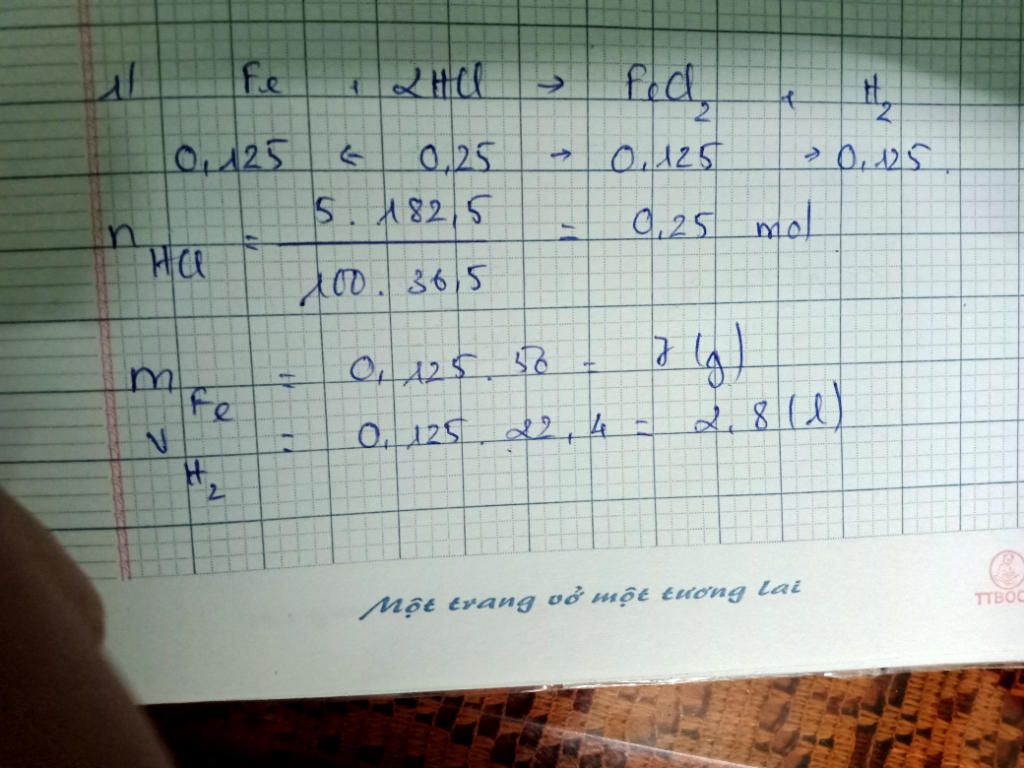 1/ Fe + 2HCl → FeCl2 + H2
0,125 ← 0,25 → 0,125 → 0,125.
5. 182,5
nHCl = = 0,25 mol
100. 36,5
mFe = 0,125. 56 = 7 (g)
VH2 = 0,125. 22,4 = 2,8 (l)
Một trang vở một tương lai
TTBOO